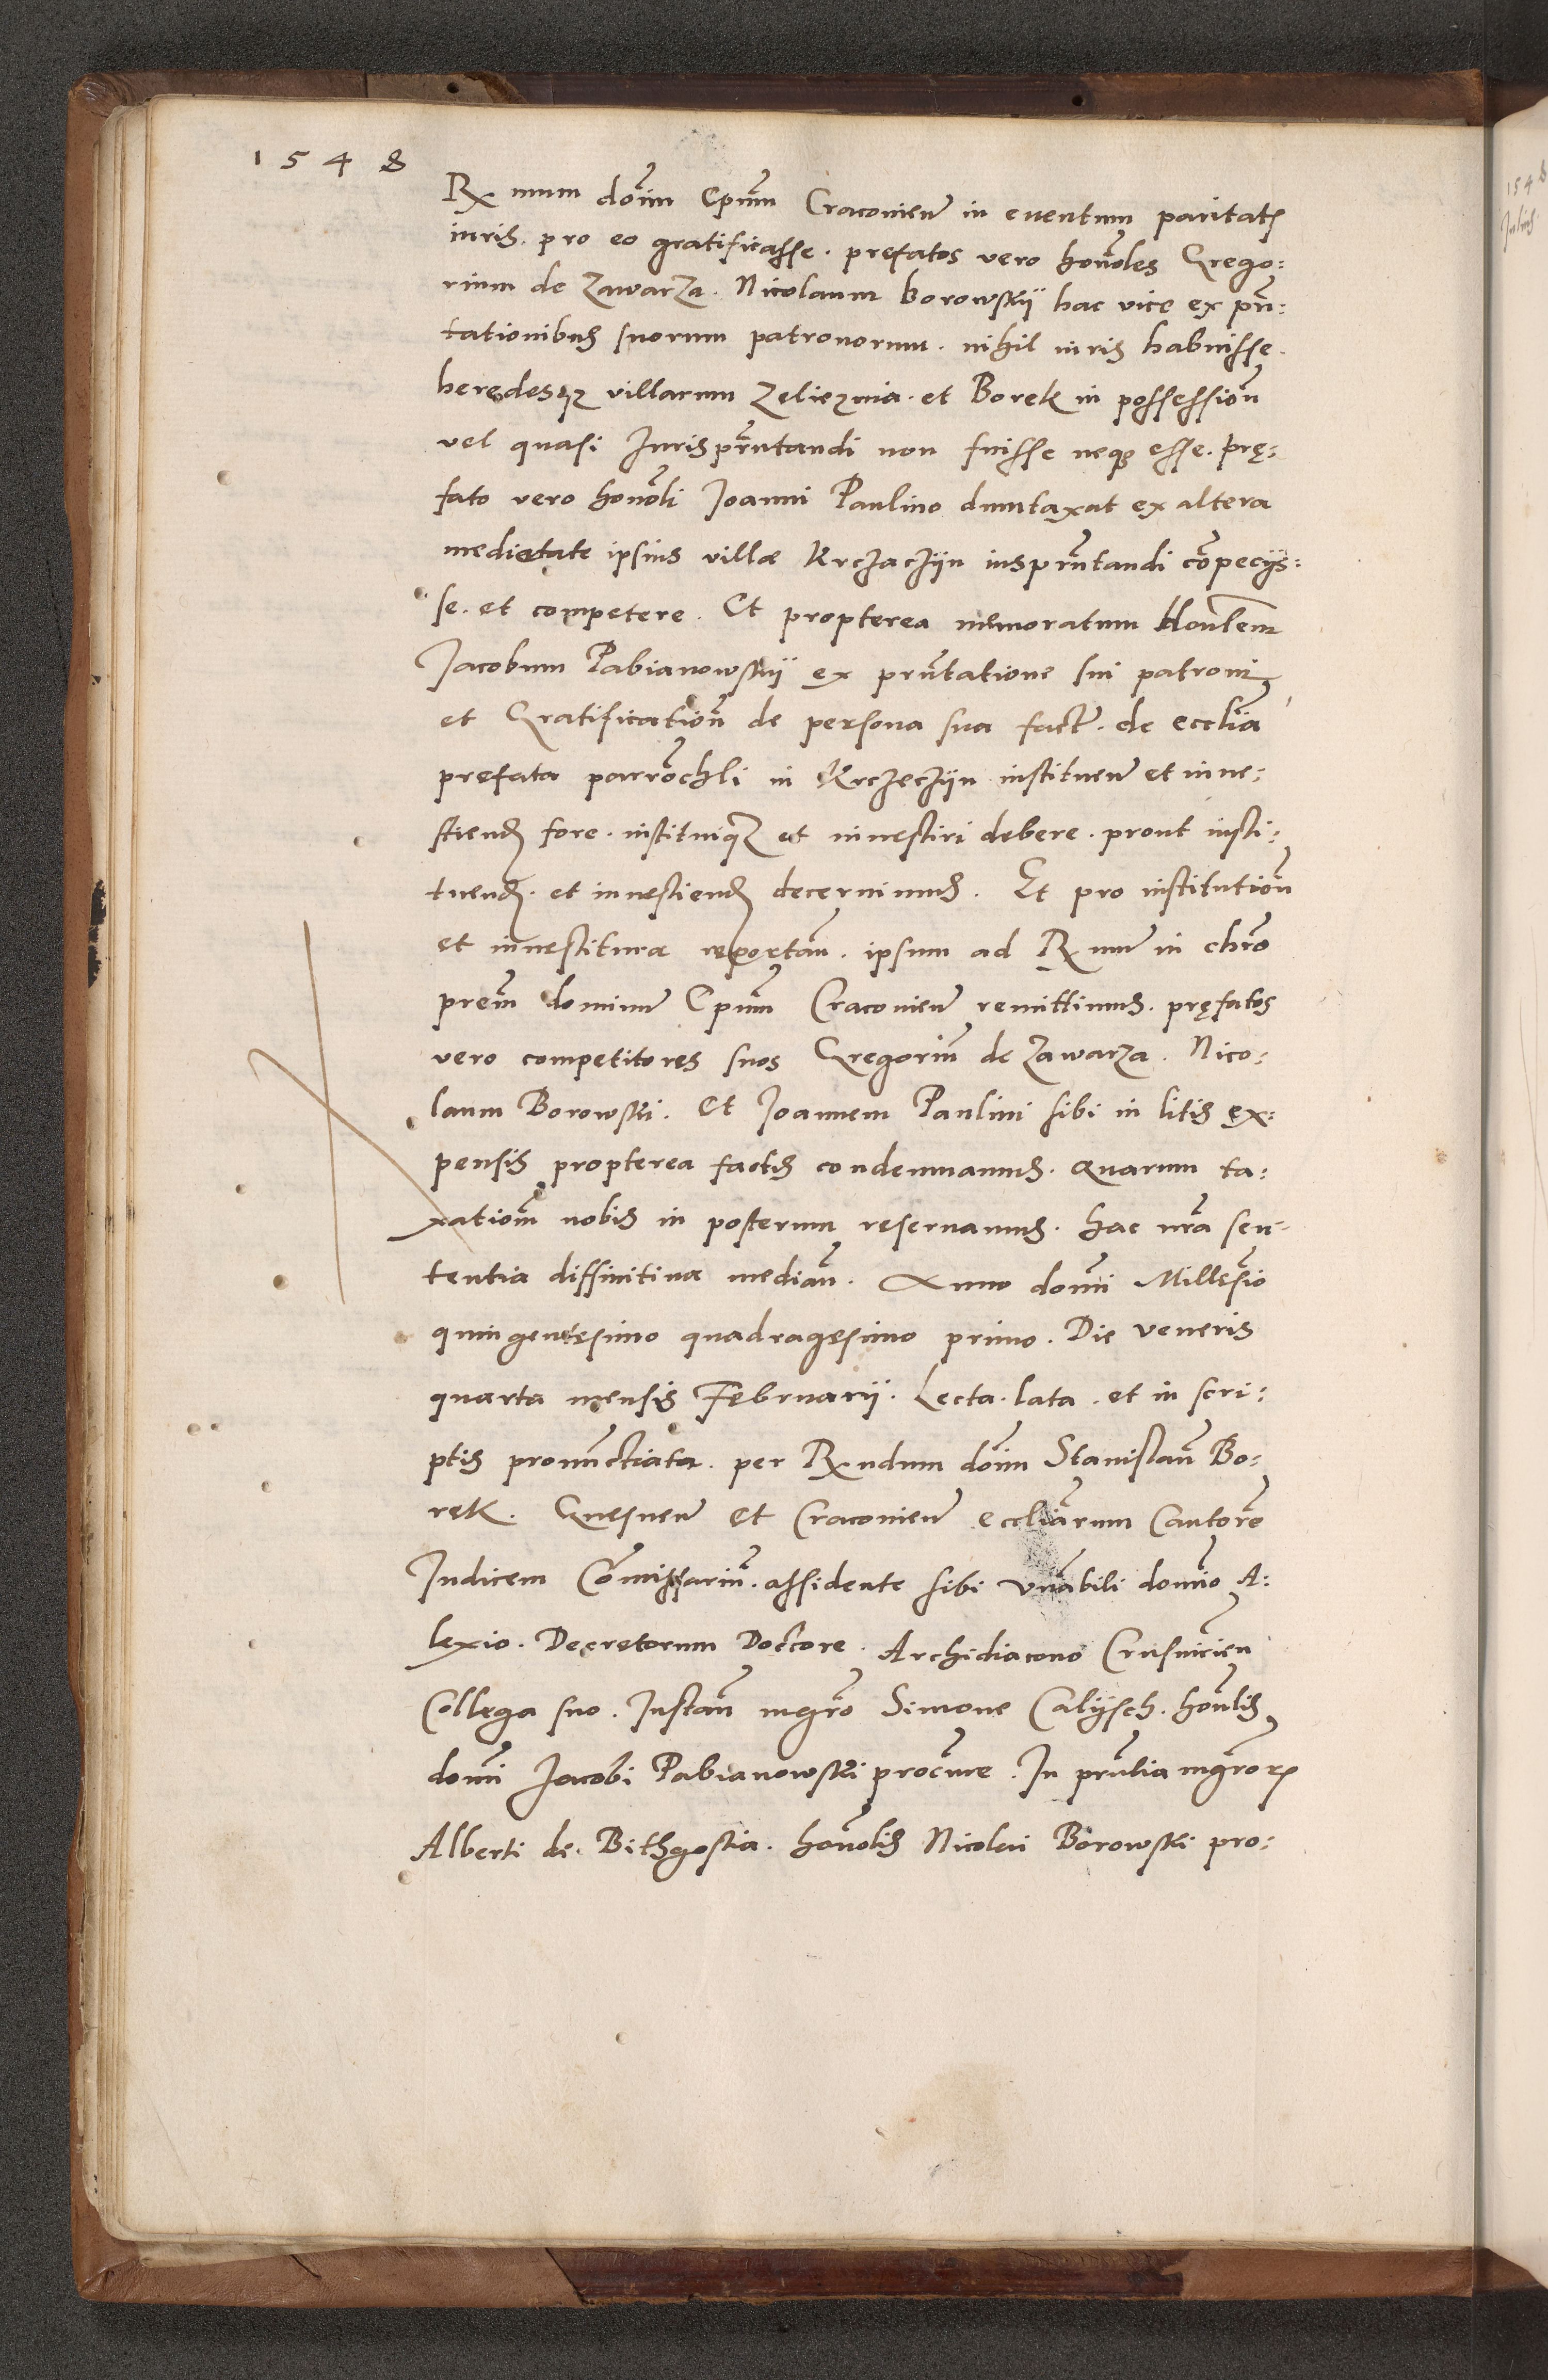 1548
Rx mum dom̄ Epum̄ Cracovien̄ in eventum paritat͡s
iuris. pro eo gratificasse. prefatos vero honōles Grego:
rium de Zawarza. Nicolaum Borowskij hac vice ex pn̄:
tationibus suorum patronorum. nihil iuris habuisse.
heredesq3 villarum Zelieznia. et Borek in possession̄
vel quasi Iurispn̄tandi non fuisse neq3 esse. prę:
fato vero honōli Joanni Paulino dumtaxat ex altera
medietate ipsius villæ Krczaczijn iuspn̄tandi cōpecijs:
se. et competere. Et propterea memoratum Honlēm
Jacobum Pabianowskij ex prn̄tatione sui patroni
et Gratification̄ de persona sua fact̄. de ecclīa
prefata parrōchli in Krczeczijn instituen̄ et inve:
stiend̄ fore. instituiq3 et investiri debere. prout insti:
tuend̄. et investiend̄ decernimus. Et pro institution̄
et investitura reportan̄. ipsum ad Rx mum̄ in chrō
prēm dominum̄ Epum̄ Cracovien̄ remittimus. pręfatos
vero competitores suos Gregoriū de Zawarza. Nico:
laum Borowski. Et Joannem Paulini sibi in litis ex:
pensis propterea factis condemnamus. quarum ta:
xatiōm nobis in posterum reservamus. hac nrā sen:
tentia diffinitiva median̄. Anno domī Millesīo
quingentesimo quadragesimo primo. Die veneris
quarta mensis Februarij. Lecta. lata. et in scri:
ptis pronunctiata. per Rx ndum dom̄ Stanislaū Bo:
rek. Gnesnen̄ et Cracovien̄ ecclīarum Cantorē
Iudicem Cōmissariū. assidente sibi vnābili domīo A:
lexio. Decretorum Doctore. Archidiacono Crusvicien̄
Collega suo. Instan̄ mgrō Simone Calijsch. honlis
domī Jacobi Pabianowski procure. In prn̄tia mgrōr͡s
Alberti de. Bithgostia. honōlis Nicolai Borowski pro: